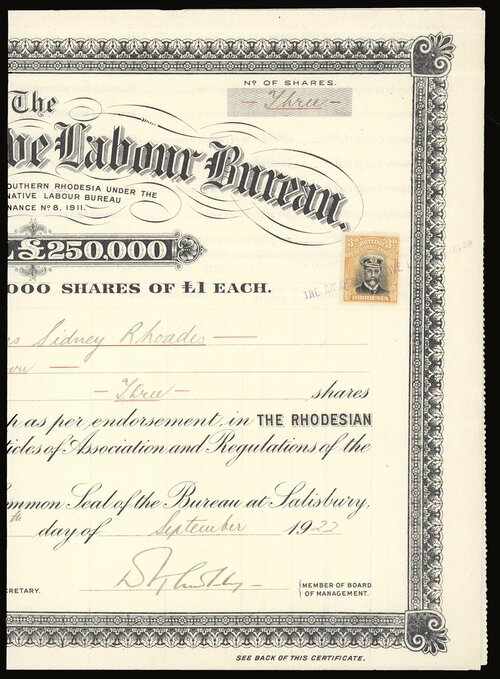 Nº OF SHARES.
— Three —
The
ve Labour Bureau.
OUTHERN RHODESIA UNDER THE
NATIVE LABOUR BUREAU
NANCE Nº 8, 1911.
£250,000
3D BRITISH 3D
SOUTH AFRICA COMPANY
RHODESIA
THE
000 SHARES OF £1 EACH.
Sidney Rhoades
— Three — shares
h as per endorsement, in THE RHODESIAN
ticles of Association and Regulations of the
ommon Seal of the Bureau at Salisbury,
th day of September 1922
CRETARY.
MEMBER OF BOARD
OF MANAGEMENT.
SEE BACK OF THIS CERTIFICATE.